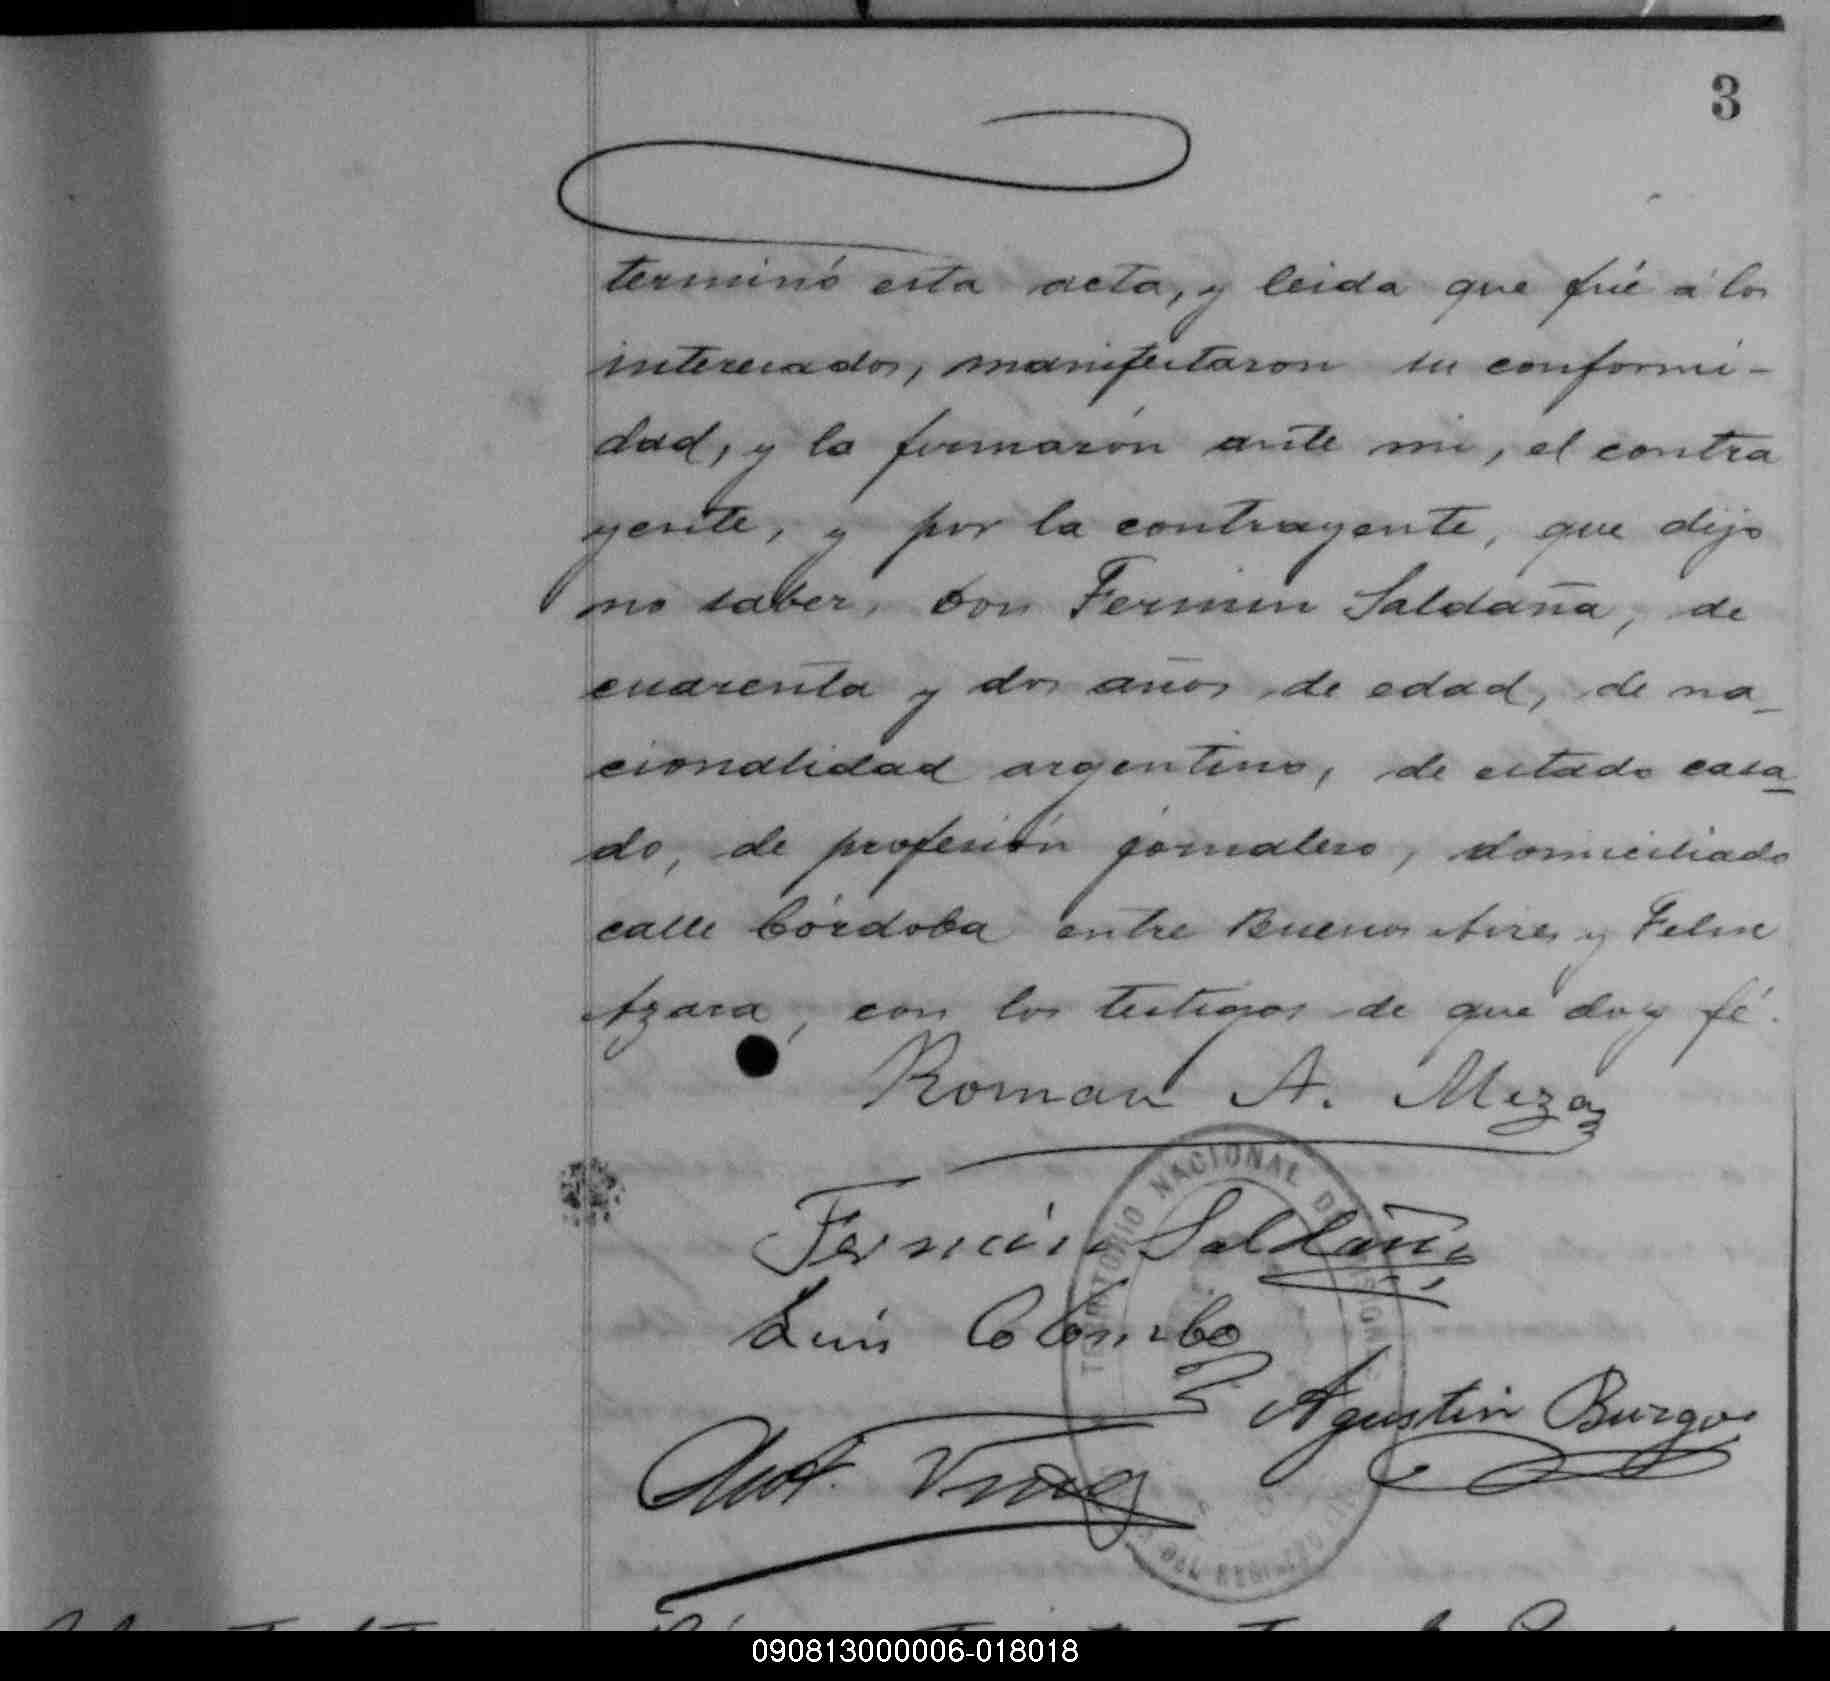 3
terminó esta acta, y leida que fué á los
interesados, manifestaron su conformi-
dad, y la firmarón ante mi, el contra
yente, y por la contrayente, que dijo
no saber, don Fermin Saldaña, de
cuarenta y dos años de edad, de na-
cionalidad argentino, de estado casa-
do, de profesión jornalero, domiciliado
calle Córdoba entre Buenos Aires y Felix
Azara, con los testigos de que doy fé.
Roman A. Meza
TERRITORIO NACIONAL DE MISIONES
Fermin Saldaña
Luis Colombo
Agustin Burgos
090813000006-018018